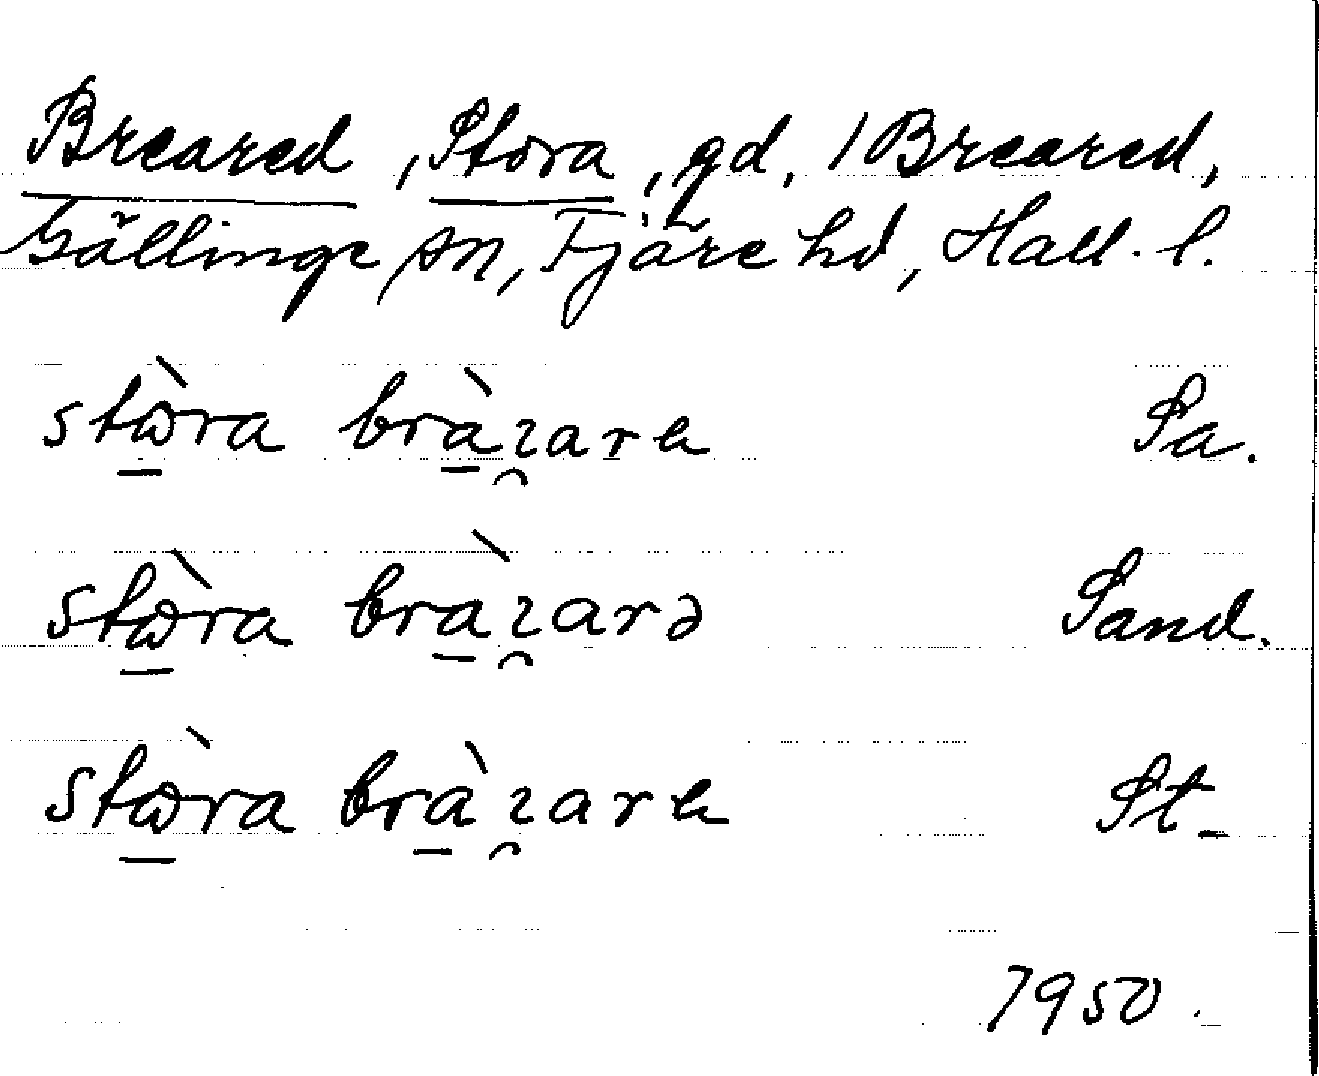 Breared, Stora, gd, 1 Breared,
Gällinge sn, Fjäre hd, Hall. l.
stὼ̲ra brà̲ɿ̯arɐ Sa.
stὼ̲ra brà̲ɿ̯arə Sand.
stὼ̲ra brà̲ɿ̯arɐ St.
1950.